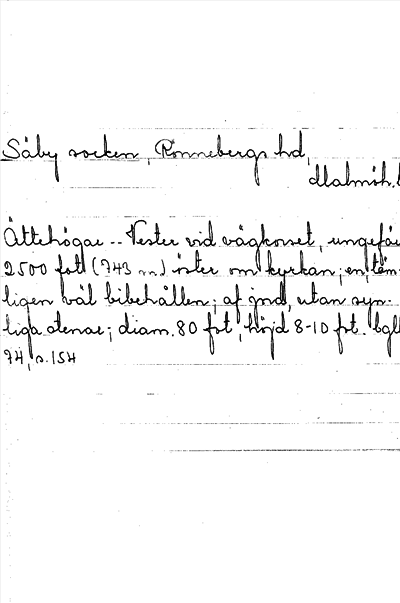 Säby socken, Rönnebergs hd,
Malmöh.
Ättehögar -- Vester vid vägkorset, ungefär
2500 fot (743 m) öster om kyrkan; en, täm-
ligen väl bibehållen; af jord, utan syn-
liga stenar; diam. 80 fot, höjd 8-10 fot.
74, s. 154